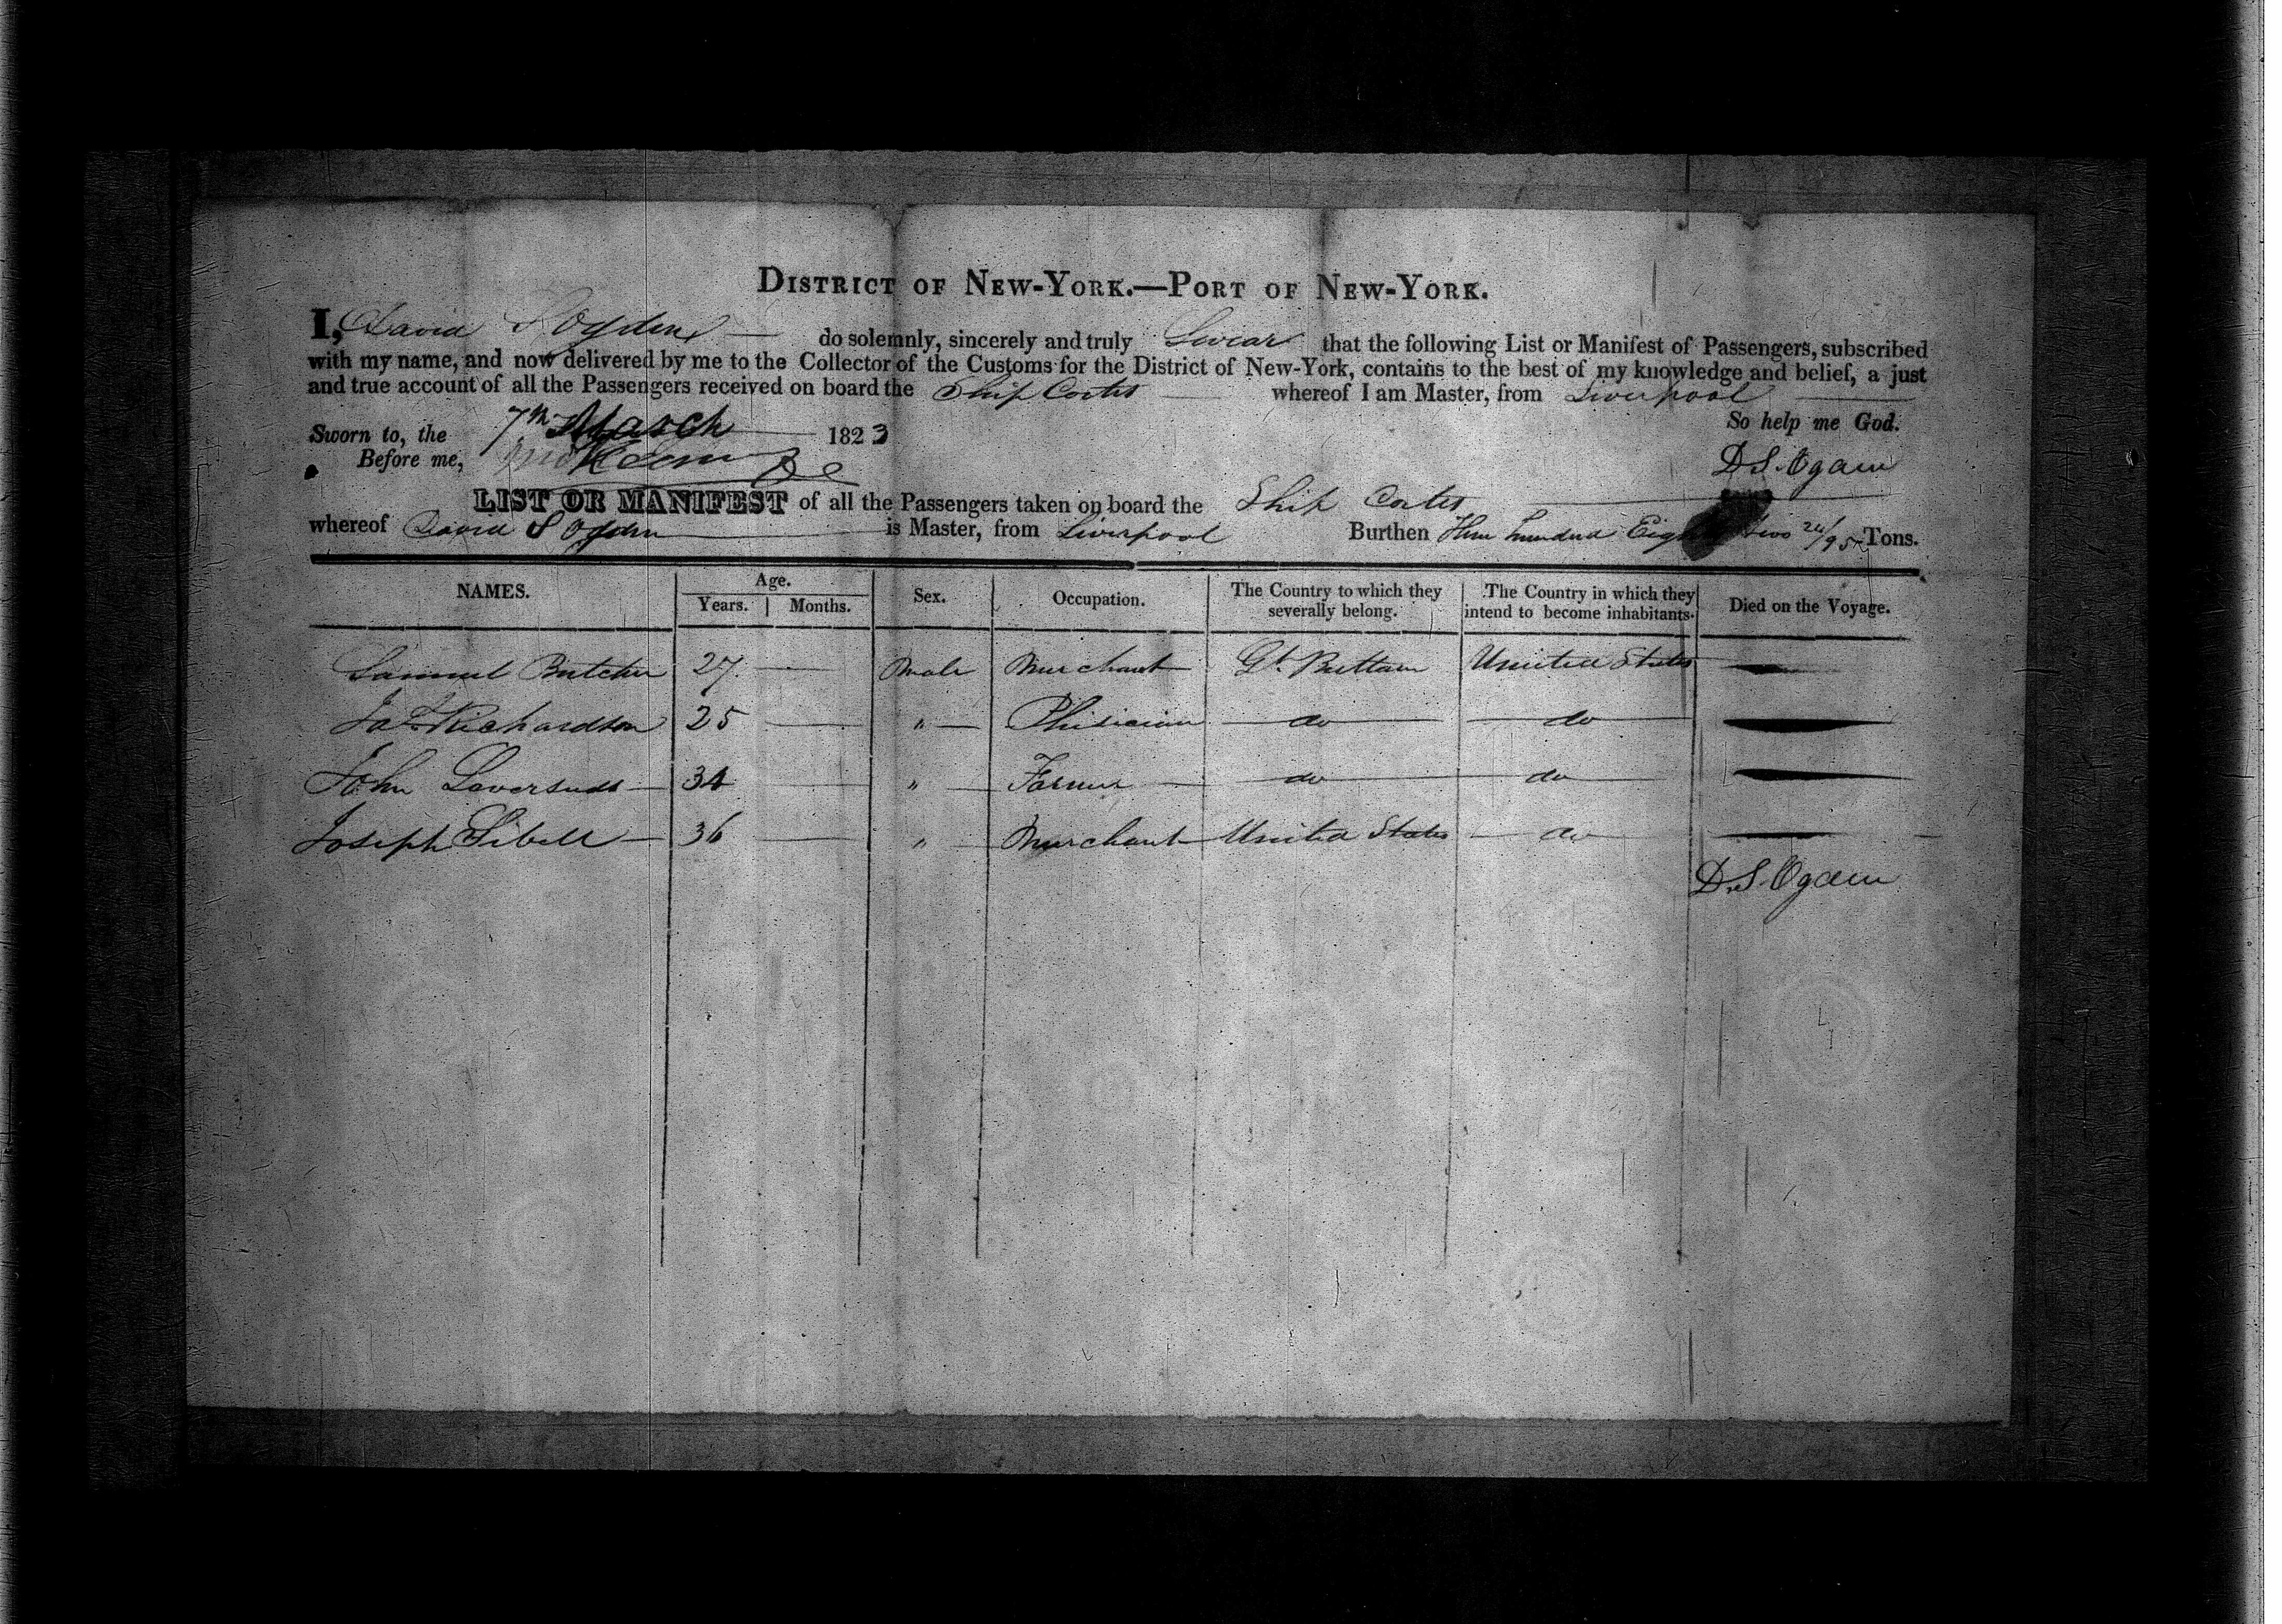 DISTRICT OF NEW-YORK.—PORT OF NEW-YORK.
I, David S Ogden do solemnly, sincerely and truly Swear that the following List or Manifest of Passengers, subscribed
with my name, and now delivered by me to the Collector of the Customs for the District of New-York, contains to the best of my knowledge and belief, a just
and true account of all the Passengers received on board the Ship Cortes whereof I am Master, from Liverpool
So help me God.
Sworn to, the 7th March 1823
Before me,
D.S. Ogden
LIST OR MANIFEST of all the Passengers taken on board the Ship Cortes
whereof David S Ogden is Master, from Liverpool Burthen Three hundred Eighty two 24/95 Tons.
NAMES. Age. Years. Months. Sex. Occupation. The Country to which they severally belong. The Country in which they intend to become inhabitants. Died on the Voyage.
Samuel Butcher 27 — Male Merchant Gt. Brittain United States —
Richardson 25 — " Phisician do do —
John 34 — " Farmer do do —
Joseph Sibell 36 — " Merchant United States do —
D.S. Ogden